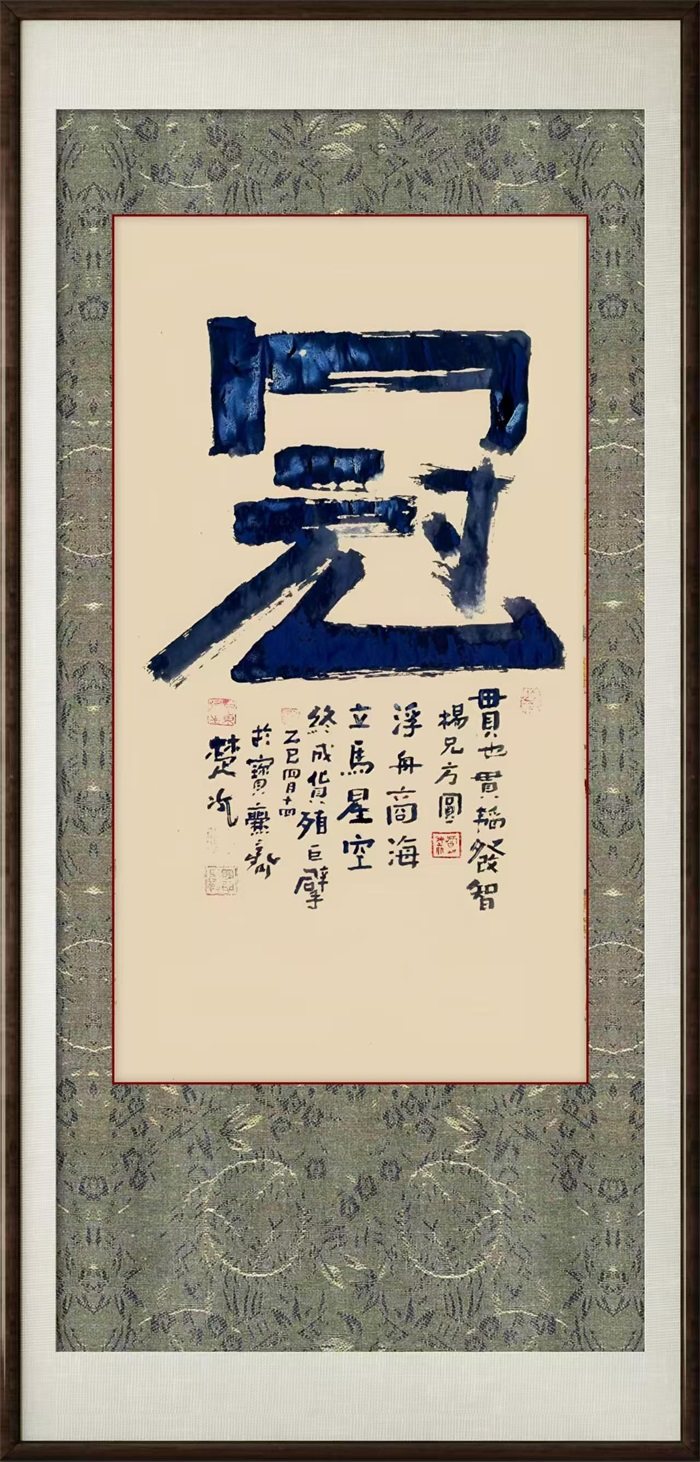 冠
貫也貫韜發智
楊兄方圓
浮舟商海
立馬星空
終成貨殖巨擘
乙巳四月十四
於寶靈齋
楚汽